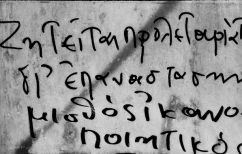 Ζητείται προλεταριά
δι' επαναστασην
μισθός ικανο
ποιητικός